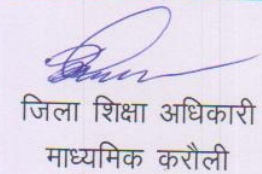 जिला शिक्षा अधिकारी
माध्यमिक करौली